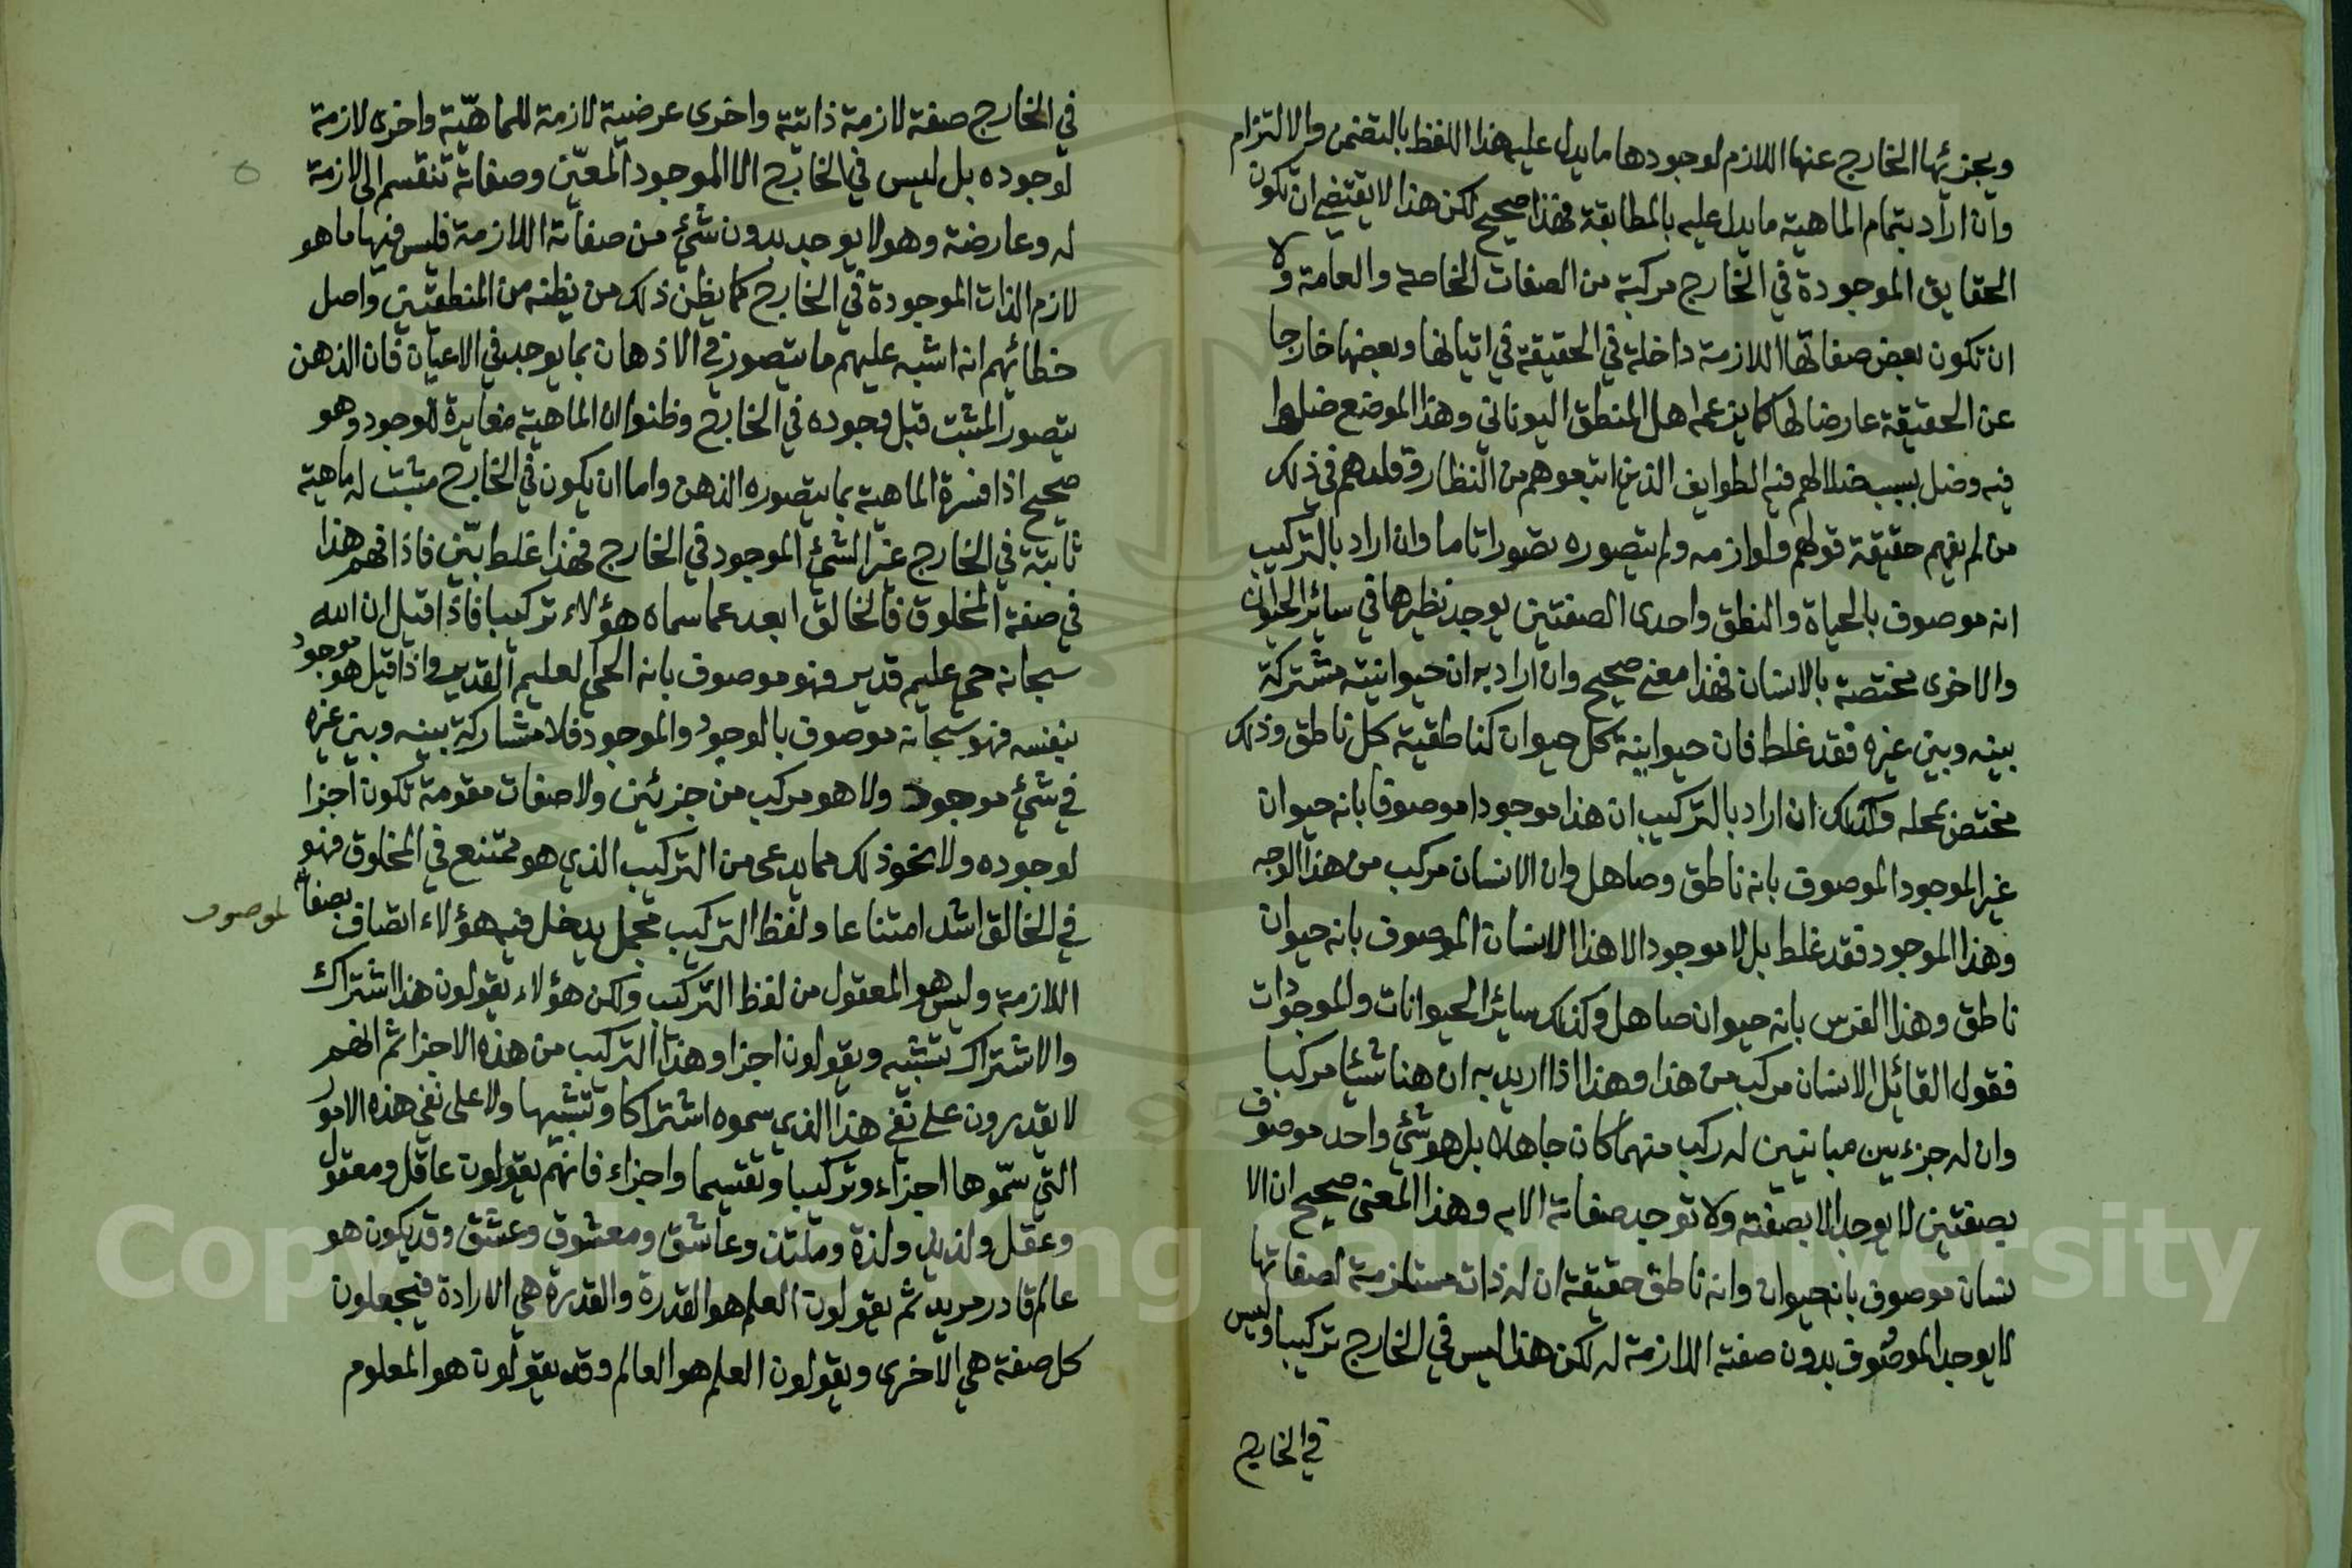 ويجزئها الخارج عنها اللازم لوجودها ما يدل عليه هذا اللفظ بالتضمن والالتزام
وان اراد بتمام الماهية ما يدل عليه بالمطابقة فهذا صحيح لكن هذا لا يقتضي ان تكون
الحقايق الموجودة في الخارج مركبة من الصفات الخاصة والعامة ولا
ان تكون بعض صفاتها اللازمة داخلة في الحقيقة في اتيانها وبعضها خارجا
عن الحقيقة عارضا لها كما يزعمه اهل المنطق اليوناني وهذا الموضع ضلوا
فيه وضل بسبب ضلالهم فيه الطوايف الذين اتبعوهم من النظار وقلدهم في ذلك
من لم يفهم حقيقة قولهم ولوازمه ولم يتصوره تصورا تاما وان اراد بالتركيب
انه موصوف بالحياة والنطق واحدى الصفتين يوجد نظيرها في سائر الحيوان
والاخرى مختصة بالانسان فهذا معنى صحيح وان اراد به ان حيوانيته مشتركة
بينه وبين غيره فقد غلط فان حيوانية كل حيوان كناطقية كل ناطق وذلك
مختص بمحله وكذلك ان اراد بالتركيب ان هذا موجودا موصوفا بانه حيوان
غير الموجود الموصوف بانه ناطق وصاهل وان الانسان مركب من هذا الوجه
وهذا الموجود فقد غلط بل لا موجود الا هذا الانسان الموصوف بانه حيوان
ناطق وهذا الفرس بانه حيوان صاهل وكذلك سائر الحيوانات والموجودات
فقول القائل الانسان مركب من هذا وهذا اذا اريد به ان هنا شيئا مركبا
وان له جزءين مباينين له ركب منهما كان جاهلا بل هو شئ واحد موصوف
بصفتين لا يوجد الا بصفته ولا توجد صفاته الا به وهذا المعنى صحيح ان الا
نسان موصوف بانه حيوان وانه ناطق حقيقة ان له ذات مستلزمة لصفاتها
لا يوجد الموصوف بدون صفته اللازمة له لكن هذا ليس في الخارج تركيبا وليس
في الخارج
في الخارج صفة لازمة ذاتية واخرى عرضية لازمة للماهيّة واخرى لازمة
لوجوده بل ليس في الخارج الا الموجود المعيّن وصفاته تنقسم الى لازمة
له وعارضة وهو لا يوجد بدون شئ من صفاته اللازمة فليس فيها ما هو
لازم الذات الموجودة في الخارج كما يظن ذلك من يظنه من المنطقيين واصل
خطائهم انه اشبه عليهم ما يتصور في الاذهان بما يوجد في الاعيان فان الذهن
يتصور المثبت قبل وجوده في الخارج وظنوا ان الماهية مغايرة للوجود وهو
صحيح اذا فسرة الماهية بما يتصوره الذهن واما ان يكون في الخارج مثبت له ماهية
ثابتة في الخارج غير الشئ الموجود في الخارج فهذا غلط بيّن فاذا فهم هذا
في صفة المخلوق فالخالق ابعد عما سماه هؤلاء تركيبا فاذا قيل ان الله
سبحانه حي عليم قدير فهو موصوف بانه الحي العليم القدير واذا قيل هو موجود
بنفسه فهو سبحانه موصوف بالوجود والموجود فلا مشاركة بينه وبين غيره
في شئ موجود ولا هو مركب من جزئين ولا صفات مقومة تكون اجزا
لوجوده ولا نحو ذلك مما يدعى من التركيب الذي هو ممتنع في المخلوق فهو
في الخالق اشد امتناعا ولفظ التركيب مجمل يدخل فيه هؤلاء اتصاف بصفاته
لموصوف
اللازمة وليس هو المعقول من لفظ التركيب ولكن هؤلاء يقولون هذا اشتراك
والاشتراك تشبيه ويقولون اجزا وهذا التركيب من هذه الاجزا ثم انهم
لا يقدرون على نفي هذا الذي سموه اشتراكا وتشبيها ولا على نفي هذه الامور
التي سمّوها اجزاء وتركيبا وتقسيما واجزاء فانهم يقولون عاقل ومعقول
وعقل ولذيذ ولذة وملتذ وعاشق ومعشوق وعشق وقد يكون هو
عالم قادر مريد ثم يقولون العلم هو القدرة والقدرة هي الارادة فيجعلون
كل صفة هي الاخرى ويقولون العلم هو العالم وقد يقولون هو المعلوم
Copyright © King Saud University